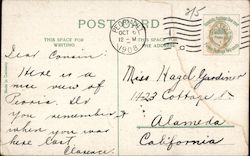 2/5
POST CARD
THIS SPACE FOR
WRITING
THE ADDRESS
OCT
12-M
1908
Dear Cousin:
Here is a
nice view of
Peoria. Do
you remember
when you was
here last
Clarence.
Miss Hazel Gardiner
1423 Cottage St.
Alameda
California